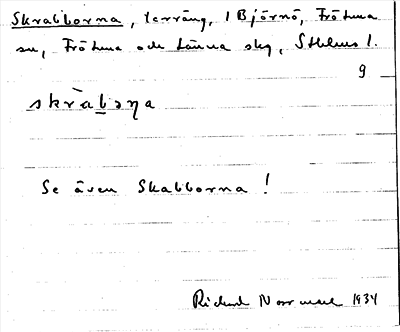 Skrabborna, terräng, 1 Björnö, Frötuna
sn, Frötuna och Länna skg, Sthlms l.
9
skràbơṇa
Se även Skabborna!
Richard Norrman 1934